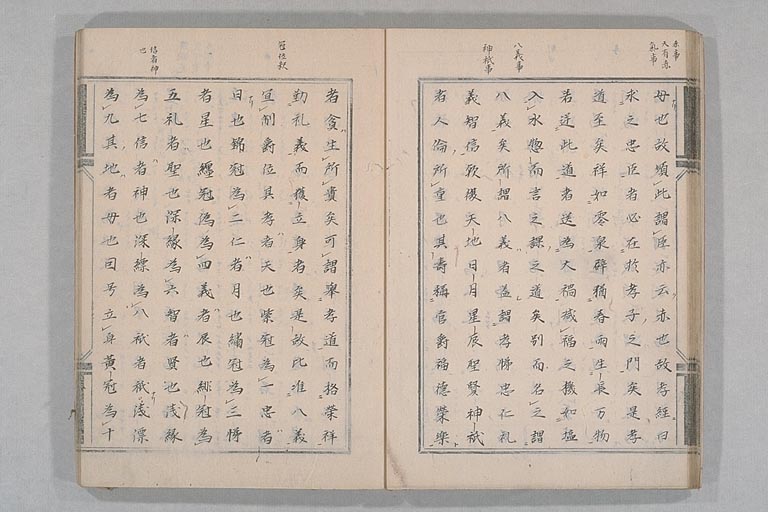 赤事
天有赤
氣事
八義事
神祇事
母也故順此謂臣亦云亦也故孝經曰
求之忠臣者必在於孝子之門矣是孝
道至矣祥如零泉辟猶春雨生長万物
若逆此道者逆為大禍滅福之機如塩
入水惣而言之謂之道矣別而名之謂
八義矣所謂八義者盖謂孝悌忠仁礼
義智信欤復天地日月星辰聖賢神祇
者人倫所重也其壽稱官爵福德榮樂
冠位欤
信者神
也
者貪生所貴矣可謂舉孝道而招榮祥
勤礼義而獲立身者矣是故比准八義
宜制爵位其孝者天也紫冠為一忠者
日也錦冠為二仁者月也繡冠為三悌
者星也纏冠為四義者辰也緋冠為
五礼者聖也深緑為六智者賢也浅緑
為七信者神也深縹為八祇者祇浅漂
為九其地者母也因号立身黄冠為十